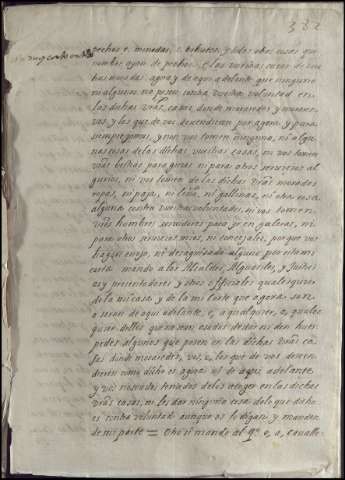 332
pechos e, monedas, e, tributos, y todas otras cosas que
nombre ayan de pechos. E las vuestras casas de vues
tras moradas agora y de aqui adelante que ninguno
ni algunos no posen contra vuestra voluntad en
las dichas vras casas donde moraredes y mararen
vos y los que de vos descendieren por agora y para
siempre jamas, y non vos tomen ninguna, ni algu
nas cosas de las dichas vuestras casas, ni vos tomen
vras bestias para guias ni para otros servicios al
gunos, ni vos tomen de las dichas vras moradas
ropas, ni paja, ni leña, ni gallinas, ni otra cosa
alguna contra vuestra voluntad, ni vos tomen
vros hombres servidores para yr en galeras, ni
para otros servicios mios, ni concejales, porque vos
hagan enojo, ni desaguisado alguno por esta mi
carta mando a los Alcaldes, Alguaciles, y Justici
as y aposentadores y otros officiales qualesquier
de la mi casa y de la mi corte que agora son
o seran de aqui adelante, e, a qualquier, e, quales
quier dellos que no sean osados de dar ni den hues
pedes algunos que posen en las dichas vras ca
sas donde moraredes, vos, e, los que de vos descen
dieren como dicho es agora ni de aqui adelante
y vos non sodes tenudos de los acoger en las dichas
vras casas, ni les dar ninguna cosa de lo que dicho
es contra voluntad aunque os lo digan y manden
de mi parte = Otrosi mando al qe. e, a, cavalle